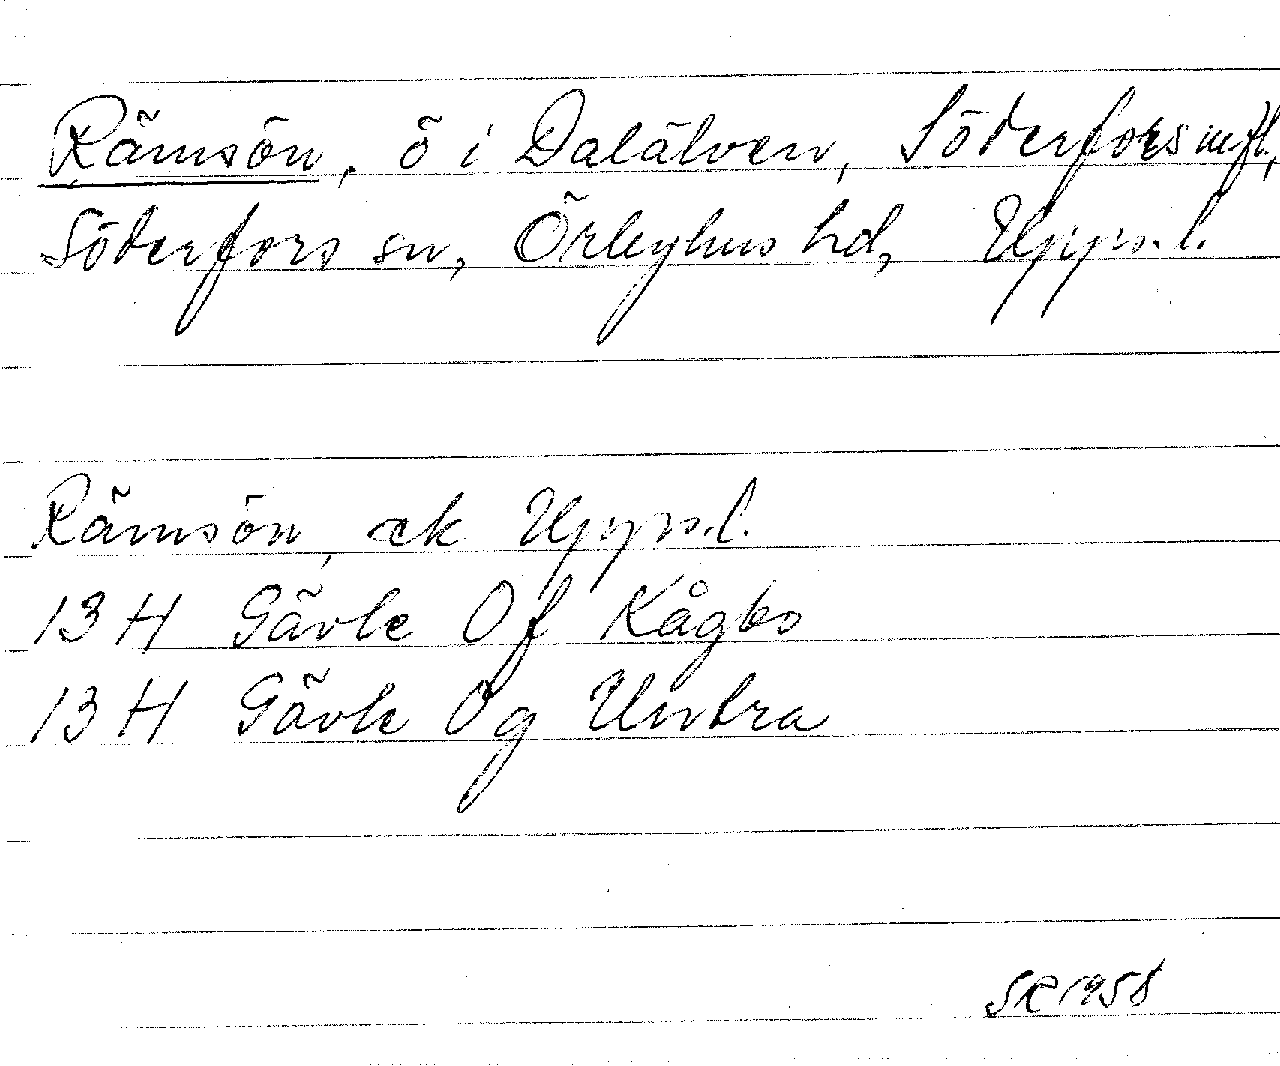 Rämsön, ö i Dalälven, Söderfors m fl,
Söderfors sn, Örbyhus hd, Upps. l.
Rämsön, ek Upps. l.
13 H Gävle Of Kågbo
13 H Gävle Og Untra
SR 1958